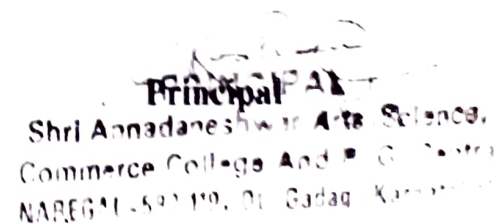 Principal
Shri Annadaneshwar Arts Science,
Commerce College And P. G. Centre
NAREGAL Gadag